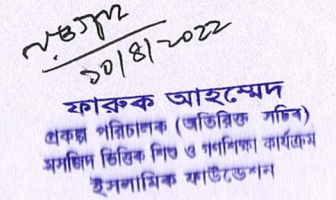 ২০/৪/২০২২
ফারুক আহম্মেদ
প্রকল্প পরিচালক (অতিরিক্ত সচিব)
মসজিদ ভিত্তিক শিশু ও গণশিক্ষা কার্যক্রম
ইসলামিক ফাউন্ডেশন